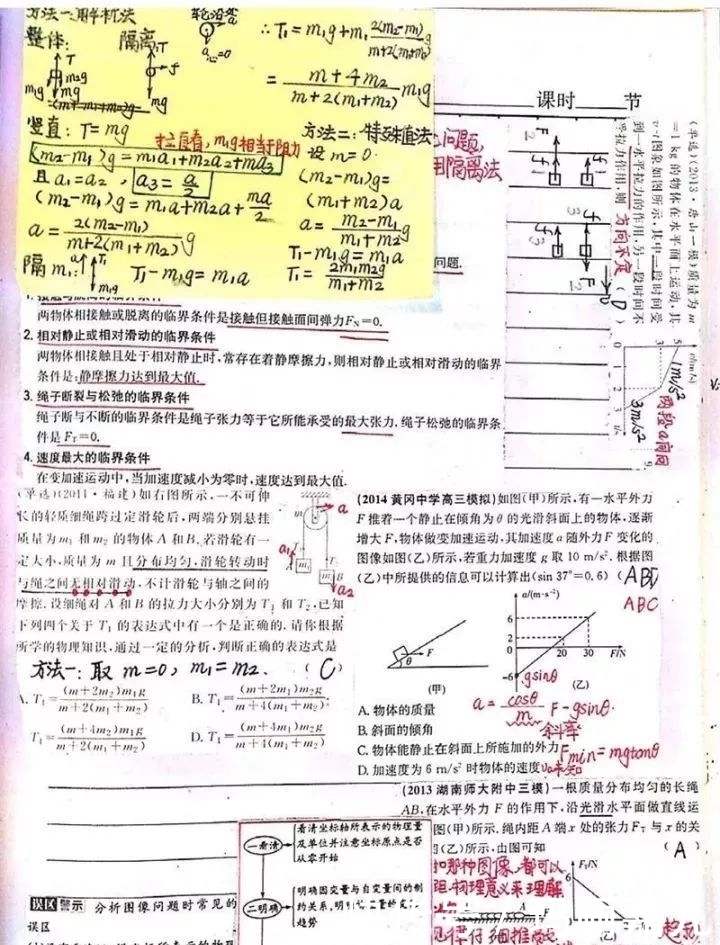 方法一:解析法
整体: 隔离:
竖直: T=mg
拉直看, m₁g相当于阻力
(m₂-m₁)g=m₁a₁+m₂a₂+ma₃
且a₁=a₂, a₃=a/2
(m₂-m₁)g=m₁a+m₂a+ma/2
a=2(m₂-m₁)/(m+2(m₁+m₂))g
隔m₁: T₁-m₁g=m₁a
∴T₁=m₁g+m₁ 2(m₂-m₁)/(m+2(m₁+m₂))g
=(m+4m₂)/(m+2(m₁+m₂)) m₁g
方法二:特殊值法
设m=0.
(m₂-m₁)g=
(m₁+m₂)a
a=(m₂-m₁)/(m₁+m₂)g
T₁-m₁g=m₁a
T₁=2m₁m₂g/(m₁+m₂)
课时 节
问题,
用隔离法
问题.
(单选)(2013·唐山一模)质量为m
=1 kg的物体在水平面上运动,其
v-t图象如图所示,其中一段时间受
到一水平拉力的作用,另一段时间不
受拉力作用,则 方向不定 (D)
1m/s²
3m/s²
两段a同向
两物体相接触或脱离的临界条件是接触但接触面间弹力F_N=0.
2. 相对静止或相对滑动的临界条件
两物体相接触且处于相对静止时,常存在着静摩擦力,则相对静止或相对滑动的临界
条件是:静摩擦力达到最大值.
3. 绳子断裂与松弛的临界条件
绳子断与不断的临界条件是绳子张力等于它所能承受的最大张力,绳子松弛的临界条
件是F_T=0.
4. 速度最大的临界条件
在变加速运动中,当加速度减小为零时,速度达到最大值.
(单选)(2011·福建)如右图所示,一不可伸
长的轻质细绳跨过定滑轮后,两端分别悬挂
质量为m₁和m₂的物体A和B.若滑轮有一
定大小,质量为m且分布均匀,滑轮转动时
与绳之间无相对滑动,不计滑轮与轴之间的
摩擦.设细绳对A和B的拉力大小分别为T₁和T₂,已知
下列四个关于T₁的表达式中有一个是正确的.请你根据
所学的物理知识,通过一定的分析,判断正确的表达式是
方法一:取m=0, m₁=m₂. (C)
A. T₁=(m+2m₂)m₁g/(m+2(m₁+m₂)) B. T₁=(m+2m₁)m₂g/(m+4(m₁+m₂))
T₁=(m+4m₂)m₁g/(m+2(m₁+m₂)) D. T₁=(m+4m₁)m₂g/(m+4(m₁+m₂))
(2014 黄冈中学高三模拟)如图(甲)所示,有一水平外力
F推着一个静止在倾角为θ的光滑斜面上的物体,逐渐
增大F,物体做变加速运动,其加速度a随外力F变化的
图像如图(乙)所示,若重力加速度g取10 m/s². 根据图
(乙)中所提供的信息可以计算出(sin 37°=0.6) (ABD
ABC
a/(m·s⁻²)
6
2
0 20 30 F/N
-6
gsinθ
F
θ
(甲) (乙)
A. 物体的质量
a=cosθ/m F-gsinθ.
B. 斜面的倾角
斜率
C. 物体能静止在斜面上所施加的外力
Fmin=mgtanθ
D. 加速度为6 m/s²时物体的速度
v₀未知
(2013 湖南师大附中三模)一根质量分布均匀的长绳
AB,在水平外力F的作用下,沿光滑水平面做直线运
图(甲)所示.绳内距A端x处的张力F_T与x的关
(乙)所示,由图可知 (A)
都可以
物理意义来理解
F_T/N
6
(乙)
一看清
看清坐标轴所表示的物理量
及单位并注意坐标原点是否
从零开始
二明确
明确因变量与自变量间的制
约关系,明
趋势
误区警示 分析图像问题时常见的
误区